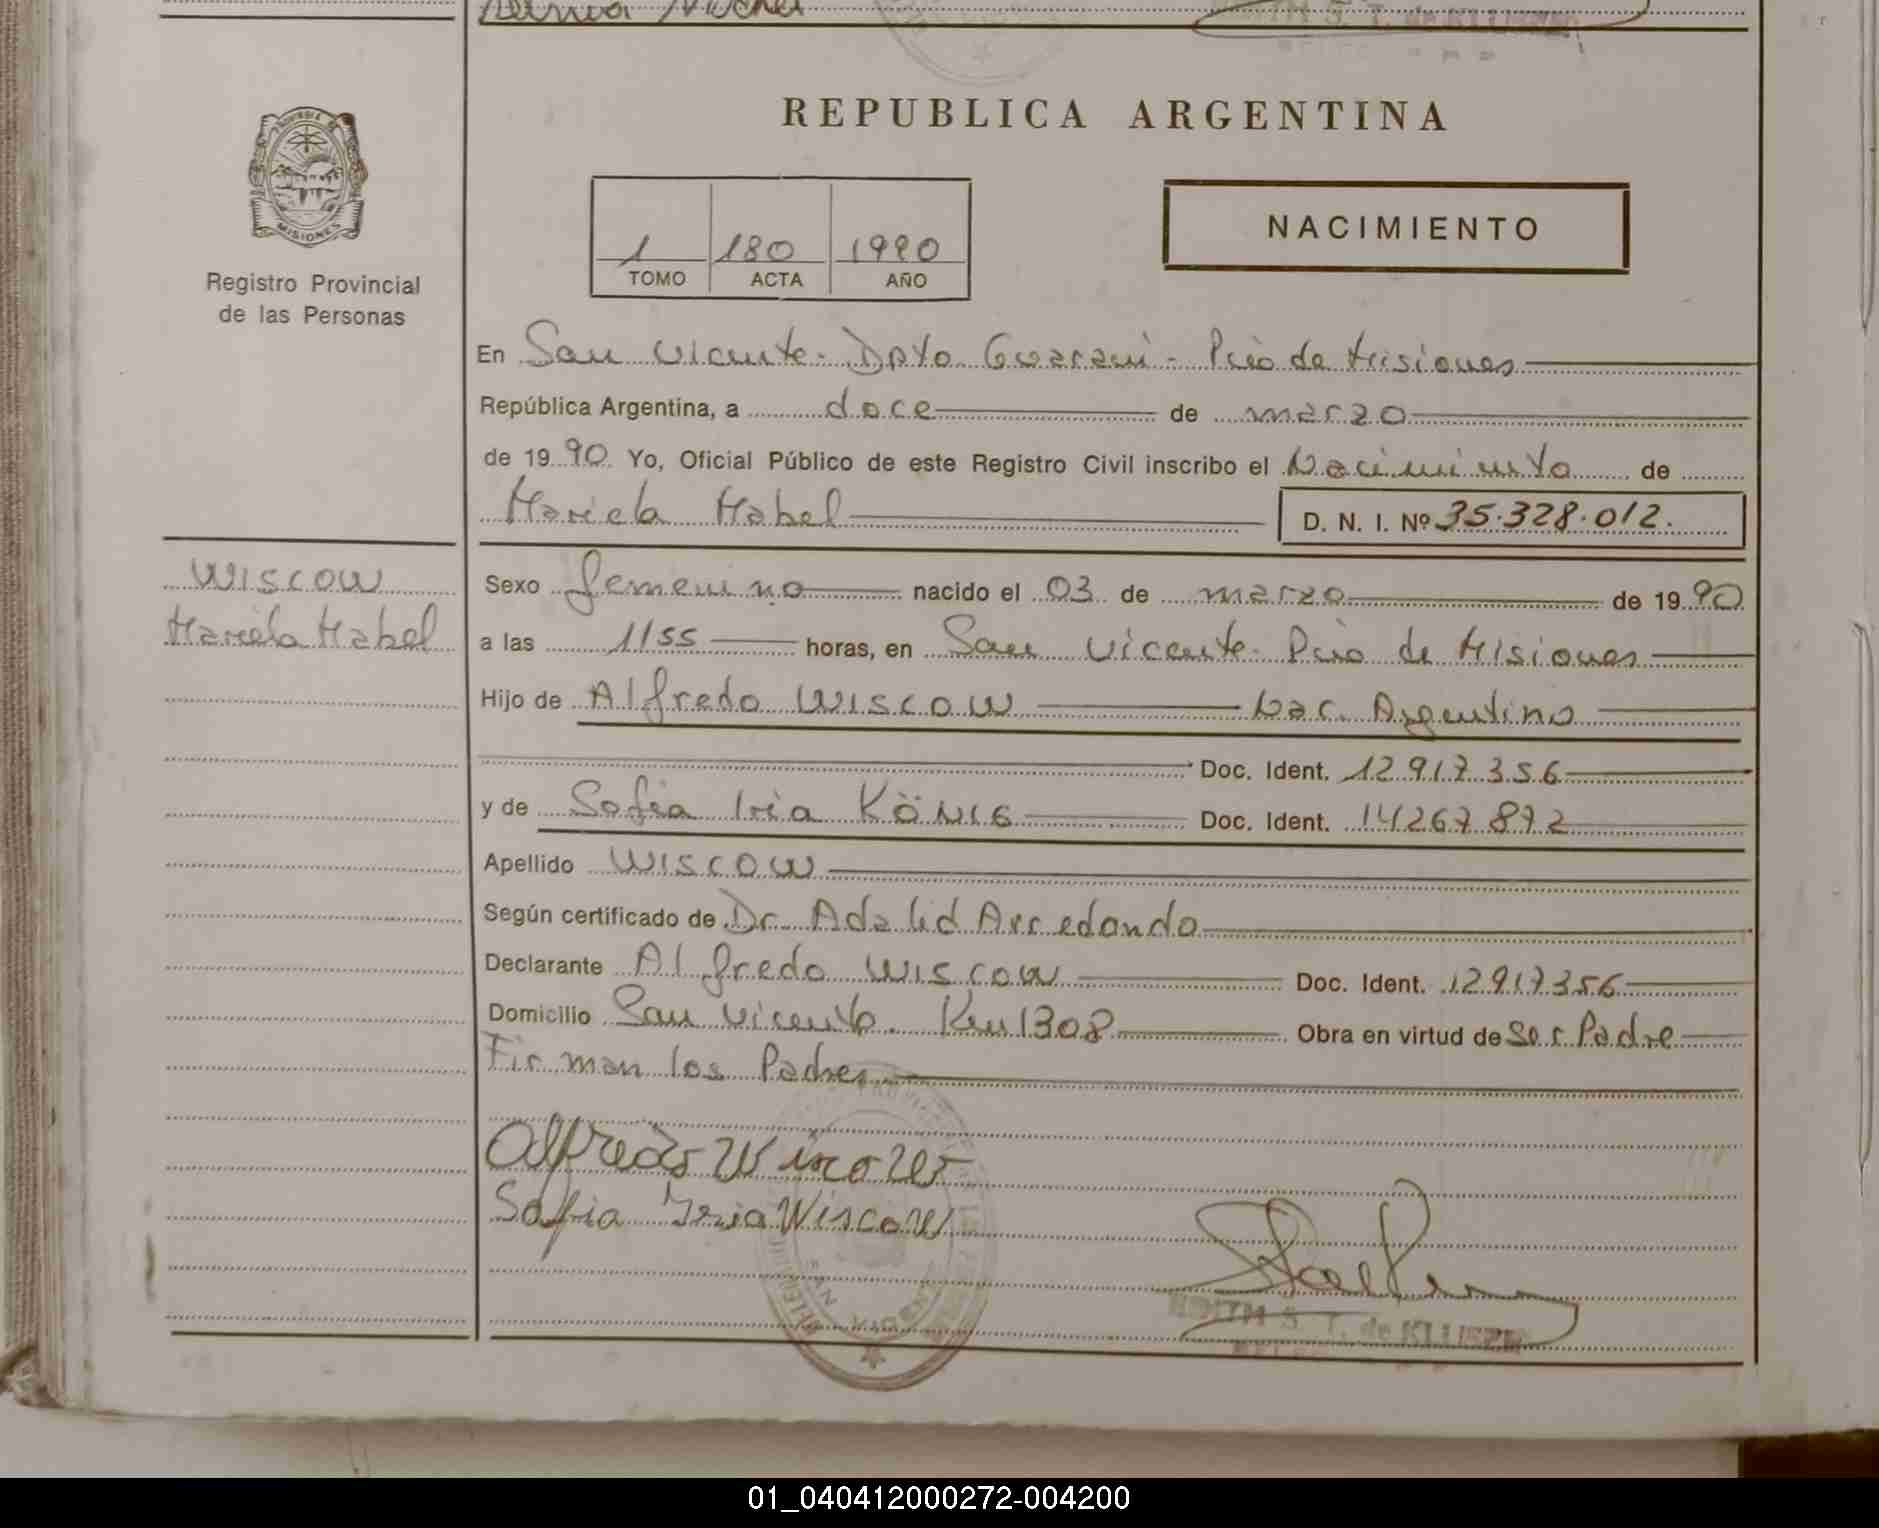 REPUBLICA ARGENTINA
MISIONES
Registro Provincial
de las Personas
1 180 1990
TOMO ACTA AÑO
NACIMIENTO
En San Vicente - Dpto Guarani - Pcia de Misiones
República Argentina, a doce de marzo
de 1990 Yo, Oficial Público de este Registro Civil inscribo el Nacimiento de
Mariela Mabel D. N. I. Nº 35.328.012.
WISCOW
Mariela Mabel
Sexo femenino nacido el 03 de marzo de 1990
a las 1155 horas, en San Vicente - Pcia de Misiones
Hijo de Alfredo WISCOW Nac. Argentino
Doc. Ident. 12917356
y de Sofia Iria KÖNIG Doc. Ident. 14267872
Apellido WISCOW
Según certificado de Dr. Adalid Arredondo
Declarante Alfredo WISCOW Doc. Ident. 12917356
Domicilio San Vicente. Km 1308 Obra en virtud de ser Padre
Firman los Padres
Alfredo Wiscow
Sofia Iria Wiscow
EDITH S. T. de
01_040412000272-004200